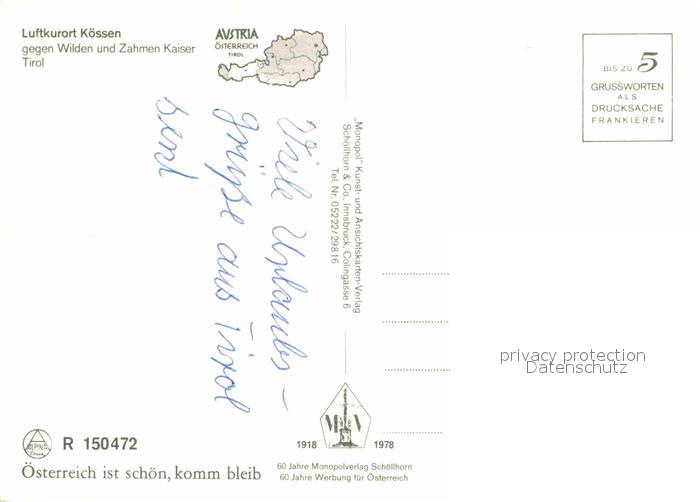 Luftkurort Kössen
gegen Wilden und Zahmen Kaiser
Tirol
AVSTRIA
ÖSTERREICH
TIROL
BIS ZU 5
GRUSSWORTEN
ALS
DRUCKSACHE
FRANKIEREN
Viele Urlaubs-
grüße aus Tirol
send
„Monopol" Kunst- und Ansichtskarten-Verlag
Schöllhorn & Co., Innsbruck, Colingasse 6
Tel. Nr. 05222/29816
privacy protection
Datenschutz
M V
1918 1978
60 Jahre Monopolverlag Schöllhorn
60 Jahre Werbung für Österreich
ALPINA
R 150472
Österreich ist schön, komm bleib